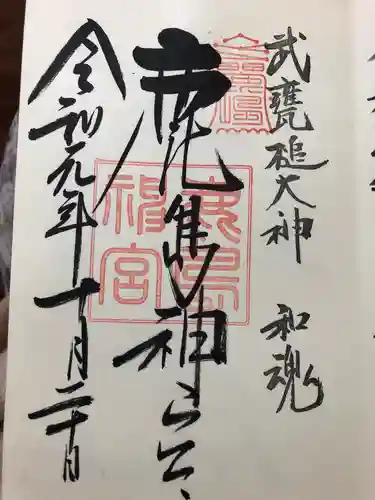 武甕槌大神 和魂
鹿島神宮
鹿島神宮
令和元年十月二十日